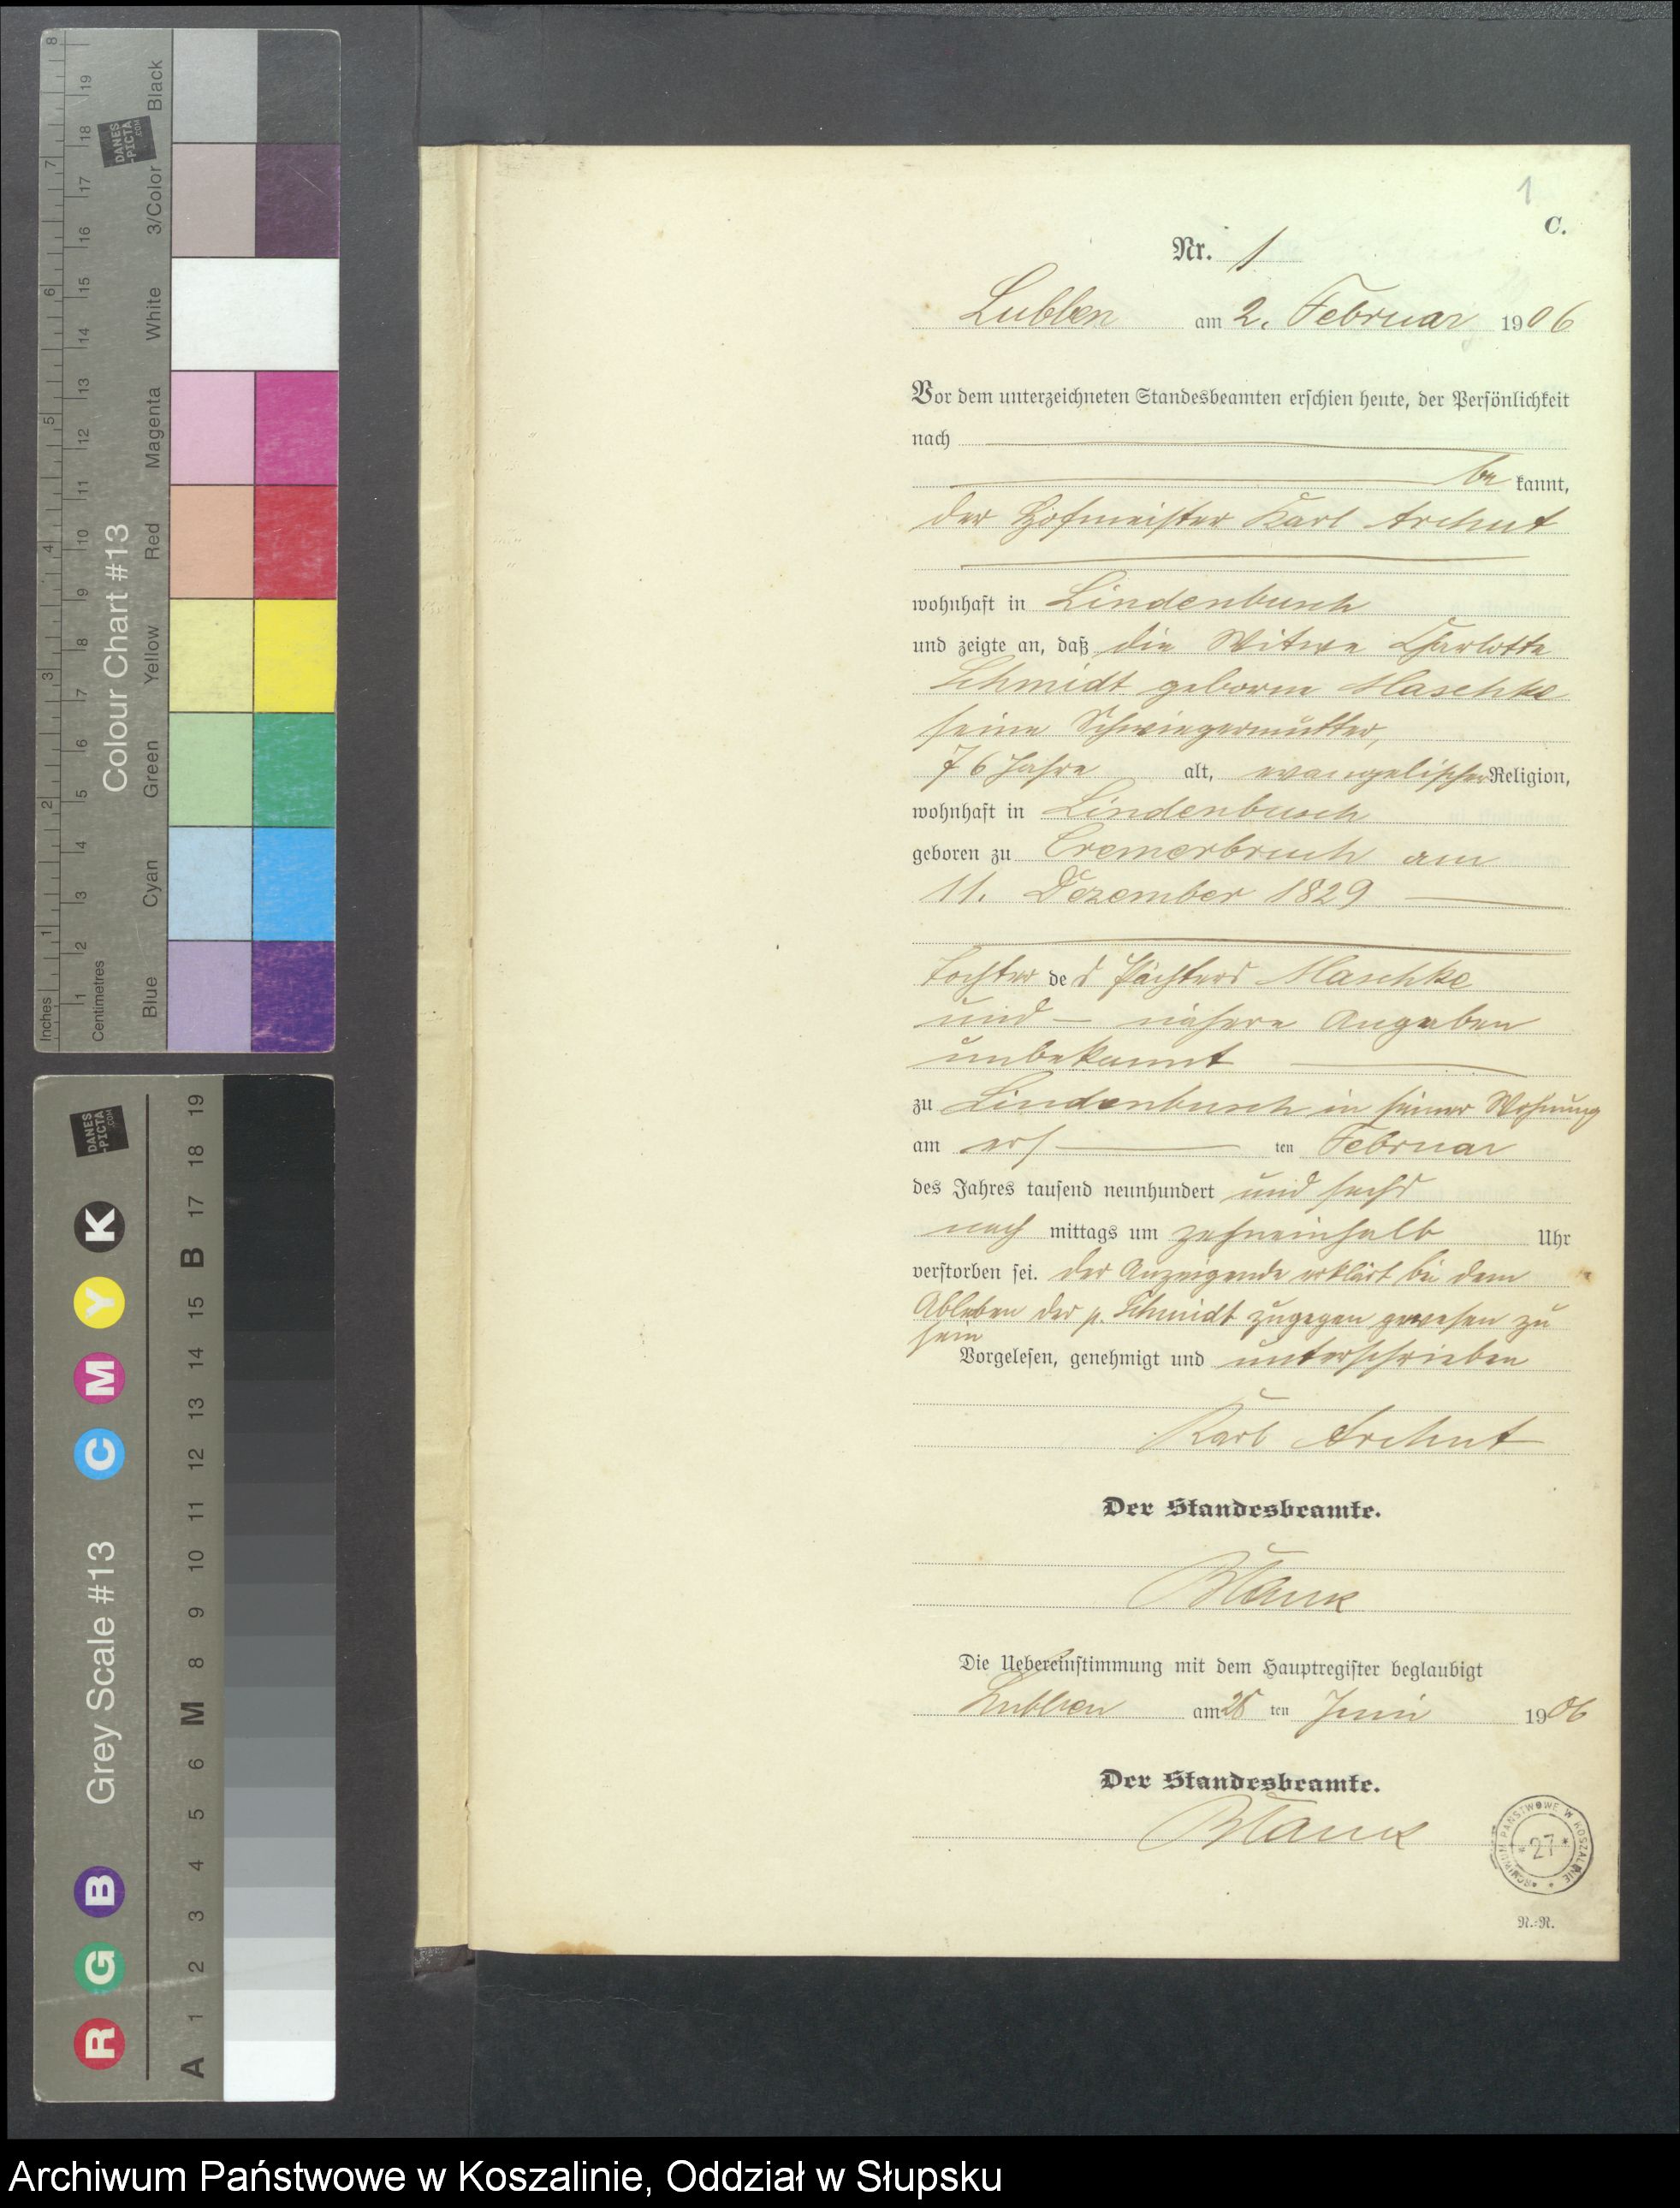 1
C.
Nr. 1
Lubben am 2. Februar 1906
Vor dem unterzeichneten Standesbeamten erschien heute, der Persönlichkeit
nach
be kannt,
der Hofmeister Karl Archut
wohnhaft in Lindenbusch
und zeigte an, daß die Witwe Charlotte
Schmidt geborne Maschke
seine Schwiegermutter,
76 Jahre alt, evangelischer Religion,
wohnhaft in Lindenbusch
geboren zu Cremerbruch am
11. Dezember 1829
Tochter des Pächters Maschke
und — nähere Angaben
unbekannt
zu Lindenbusch in seiner Wohnung
am ers ten Februar
des Jahres tausend neunhundert und sechs
nach mittags um zehneinhalb Uhr
verstorben sei. Der Anzeigende erklärt bei dem
Ableben der p. Schmidt zugegen gewesen zu
sein
Vorgelesen, genehmigt und unterschrieben
Karl Archut
Der Standesbeamte.
Die Uebereinstimmung mit dem Hauptregister beglaubigt
Lubben am ten Juni 1906
Der Standesbeamte.
ARCHIWUM PAŃSTWOWE W KOSZALINIE
* 27 *
N.-R.
Inches
1 2 3 4 5 6 7 8
Centimetres
1 2 3 4 5 6 7 8 9 10 11 12 13 14 15 16 17 18 19
Colour Chart #13
Blue Cyan Green Yellow Red Magenta White 3/Color Black
DANES-PICTA.COM
Grey Scale #13
R G B C M Y K
A 1 2 3 4 5 6 M 8 9 10 11 12 13 14 15 B 17 18 19
DANES-PICTA.COM
Archiwum Państwowe w Koszalinie, Oddział w Słupsku